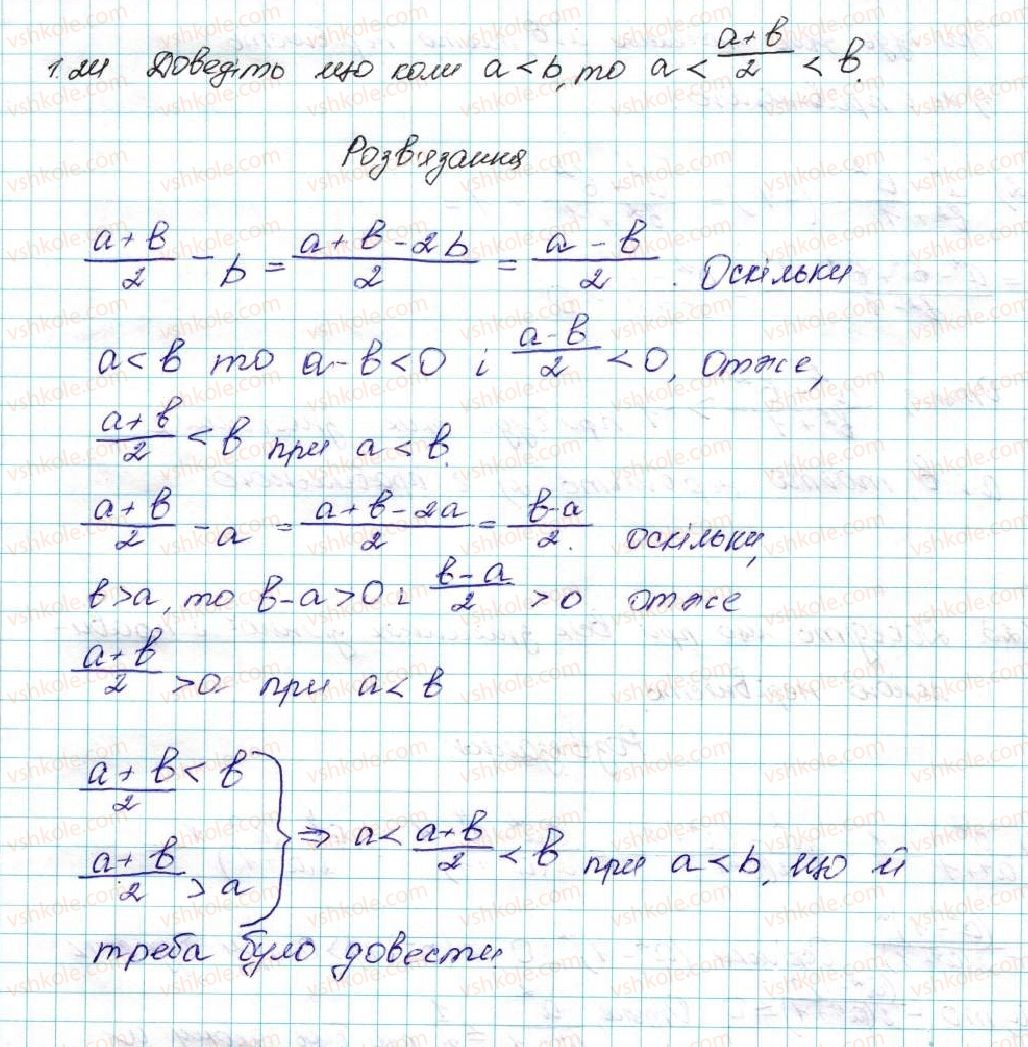 1.24 Доведіть що коли a < b, то a < (a+b)/2 < b.
Розв'язання
(a+b)/2 - b = (a+b-2b)/2 = (a-b)/2. Оскільки
a < b то a-b < 0 і (a-b)/2 < 0, отже,
(a+b)/2 < b при a < b.
(a+b)/2 - a = (a+b-2a)/2 = (b-a)/2. оскільки,
b > a, то b-a > 0 і (b-a)/2 > 0 отже
(a+b)/2 > 0. при a < b
(a+b)/2 < b
(a+b)/2 > a } ⇒ a < (a+b)/2 < b при a < b, що й
треба було довести